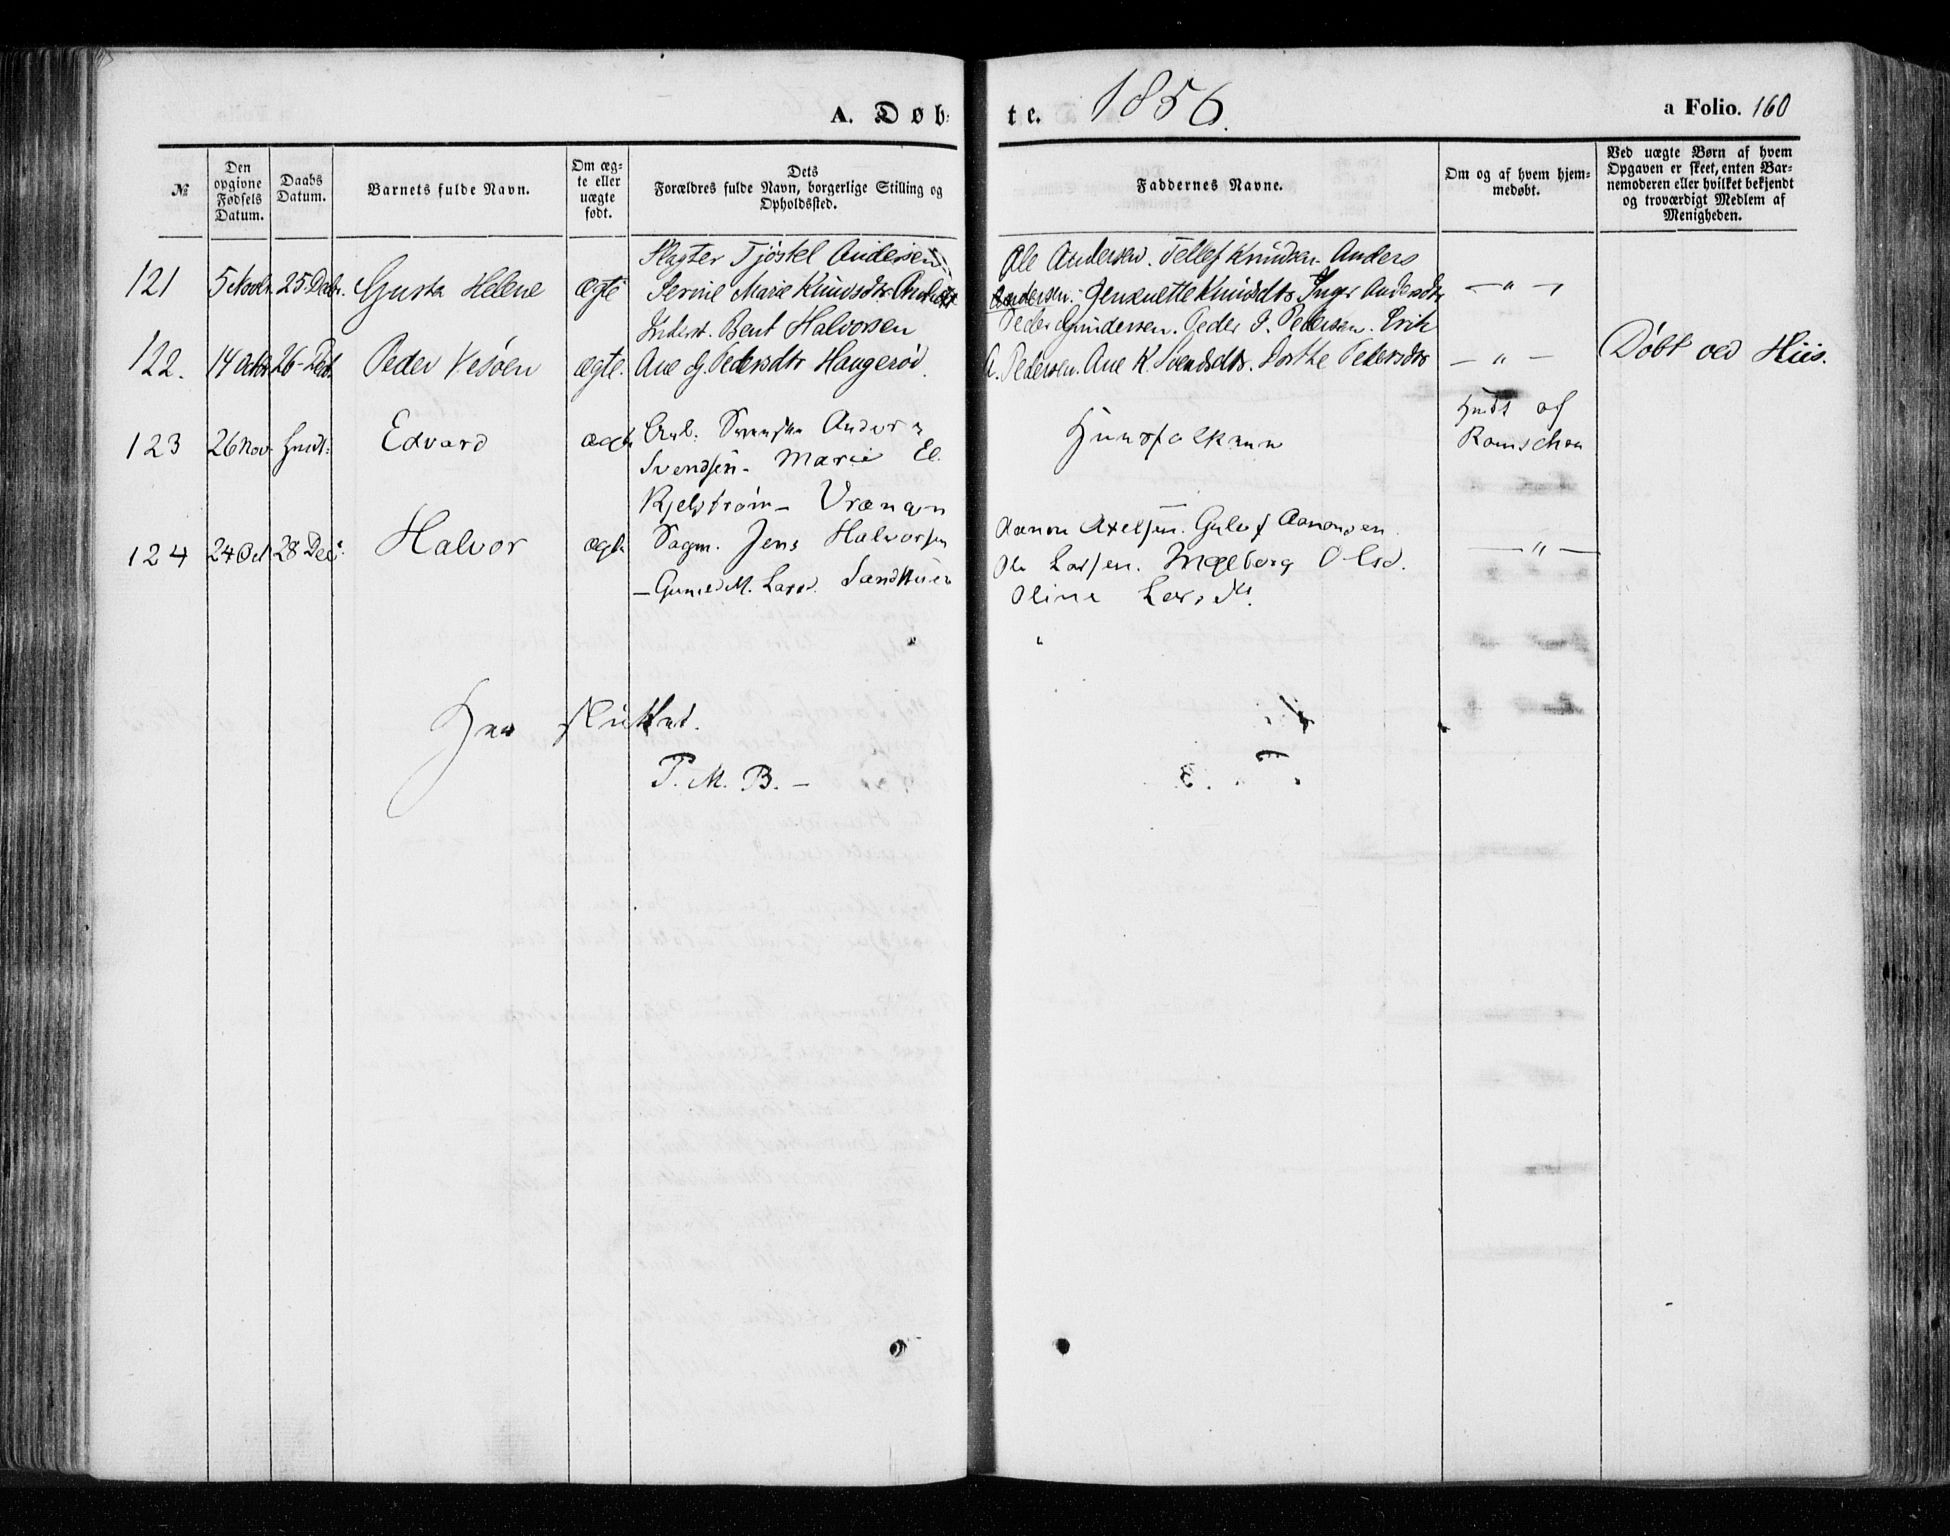 A. Døb-
te. 1856.
a Folio. 160
№
Den opgivne Fødsels Datum.
Daabs Datum.
Barnets fulde Navn.
Om ægte eller uægte født.
Dets Forældres fulde Navn, borgerlige Stilling og Opholdssted.
Faddernes Navne.
Om og af hvem hjemmedøbt.
Ved uægte Børn af hvem Opgaven er skeet, enten Barnemoderen eller hvilket bekjendt og troværdigt Medlem af Menigheden.
Slagter Tjøstel Andersen
Ole Andersen. Tellef Knudsen. Anders
121 5 Novbr. 25 Decbr. Gusta Helene ægte Serine Marie Knudsdtr
Andersen. Knudsdtr Inger Andersdtr — " —
Inderst. Bent Halvorsen
Peder Gundersen. Peder J. Pedersen. Erik
122. 14 Octbr 26 Decbr. Peder Vesøen ægte. Ane G. Pedersdtr Haugerød.
A. Pedersen. Ane K. Svendsdtr. Dorthe Pedersdtr — " — Døbt ved Hiis.
123 26 Nov. Hmdt: Edvard ægte Arb. Svenske Anders
Svendsen - Marie El.
Kjelstrøm - Vrængen
Huusfolkene
Hmdt af
124 24 Oct 28 Dec. Halvor ægte Sagm. Jens Halvorsen
— Gunild M. Larsd. Sandtuen
Aanon Axelsen. Gulov Aanonsen
Ole Larsen. Ingeborg Olsd. — " —
Oline Larsdtr.
Her sluttet.
P. M. B. —